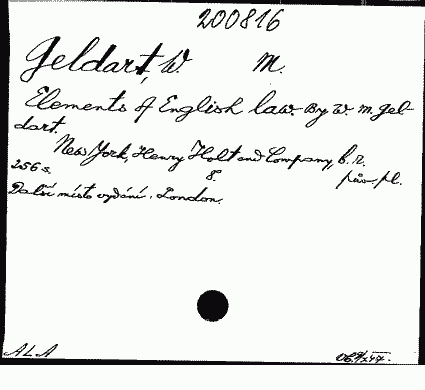 200816
Geldart, W. M.
Elements of English law. By W. M. Gel-
dart.
New York, Henry Holt and Company, b. r.
256 s. 8. pův. pl.
Další místo vydání: London.
ALA